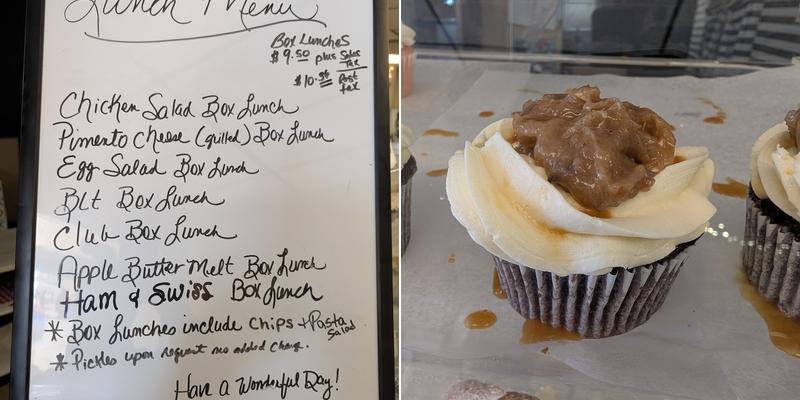 Lunch Menu
Box Lunches
$9.50 plus Sales Tax
$10.56 Post tax
Chicken Salad Box Lunch
Pimento Cheese (grilled) Box Lunch
Egg Salad Box Lunch
Blt Box Lunch
Club Box Lunch
Apple Butter Melt Box Lunch
Ham & Swiss Box Lunch
* Box Lunches include chips + Pasta Salad
* Pickles upon request no added charge.
Have a Wonderful Day!